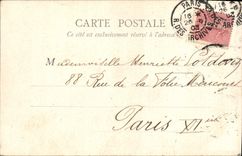 CARTE POSTALE
Ce côté est exclusivement réservé à l'adresse
PARIS
R. DES ARCHIVES
Mademoiselle Henriette
88 Rue de la Folie Méricourt
Paris XIe